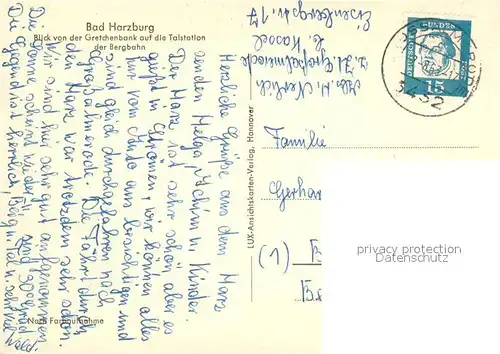 Bad Harzburg
Blick von der Gretchenbank auf die Talstation
der Bergbahn
Herzliche Grüße aus dem Harz
senden Helga, Achim u. Kinder
Der Harz ist sehr schön aber es
gießt in Strömen, wir können alles
nur vom Auto aus besichtigen und
sind gleich durchgefahren nach
Großalmerode. Die Fahrt durch
den Harz war trotzdem sehr schön.
Wir sind hier sehr gut aufgenommen
Die Sonne scheint wieder
Die Gegend ist herrlich, Berg u. Tal u. sehr viel Wald.
Abs. H.
z. Zt. Großalmerode
b. Kassel
17
LUX-Ansichtskarten-Verlag, Hannover
Nach Farbaufnahme
DEUTSCHE BUNDESPOST
15
3432
Familie
Gerhar
(1) B
Be
privacy protection
Datenschutz